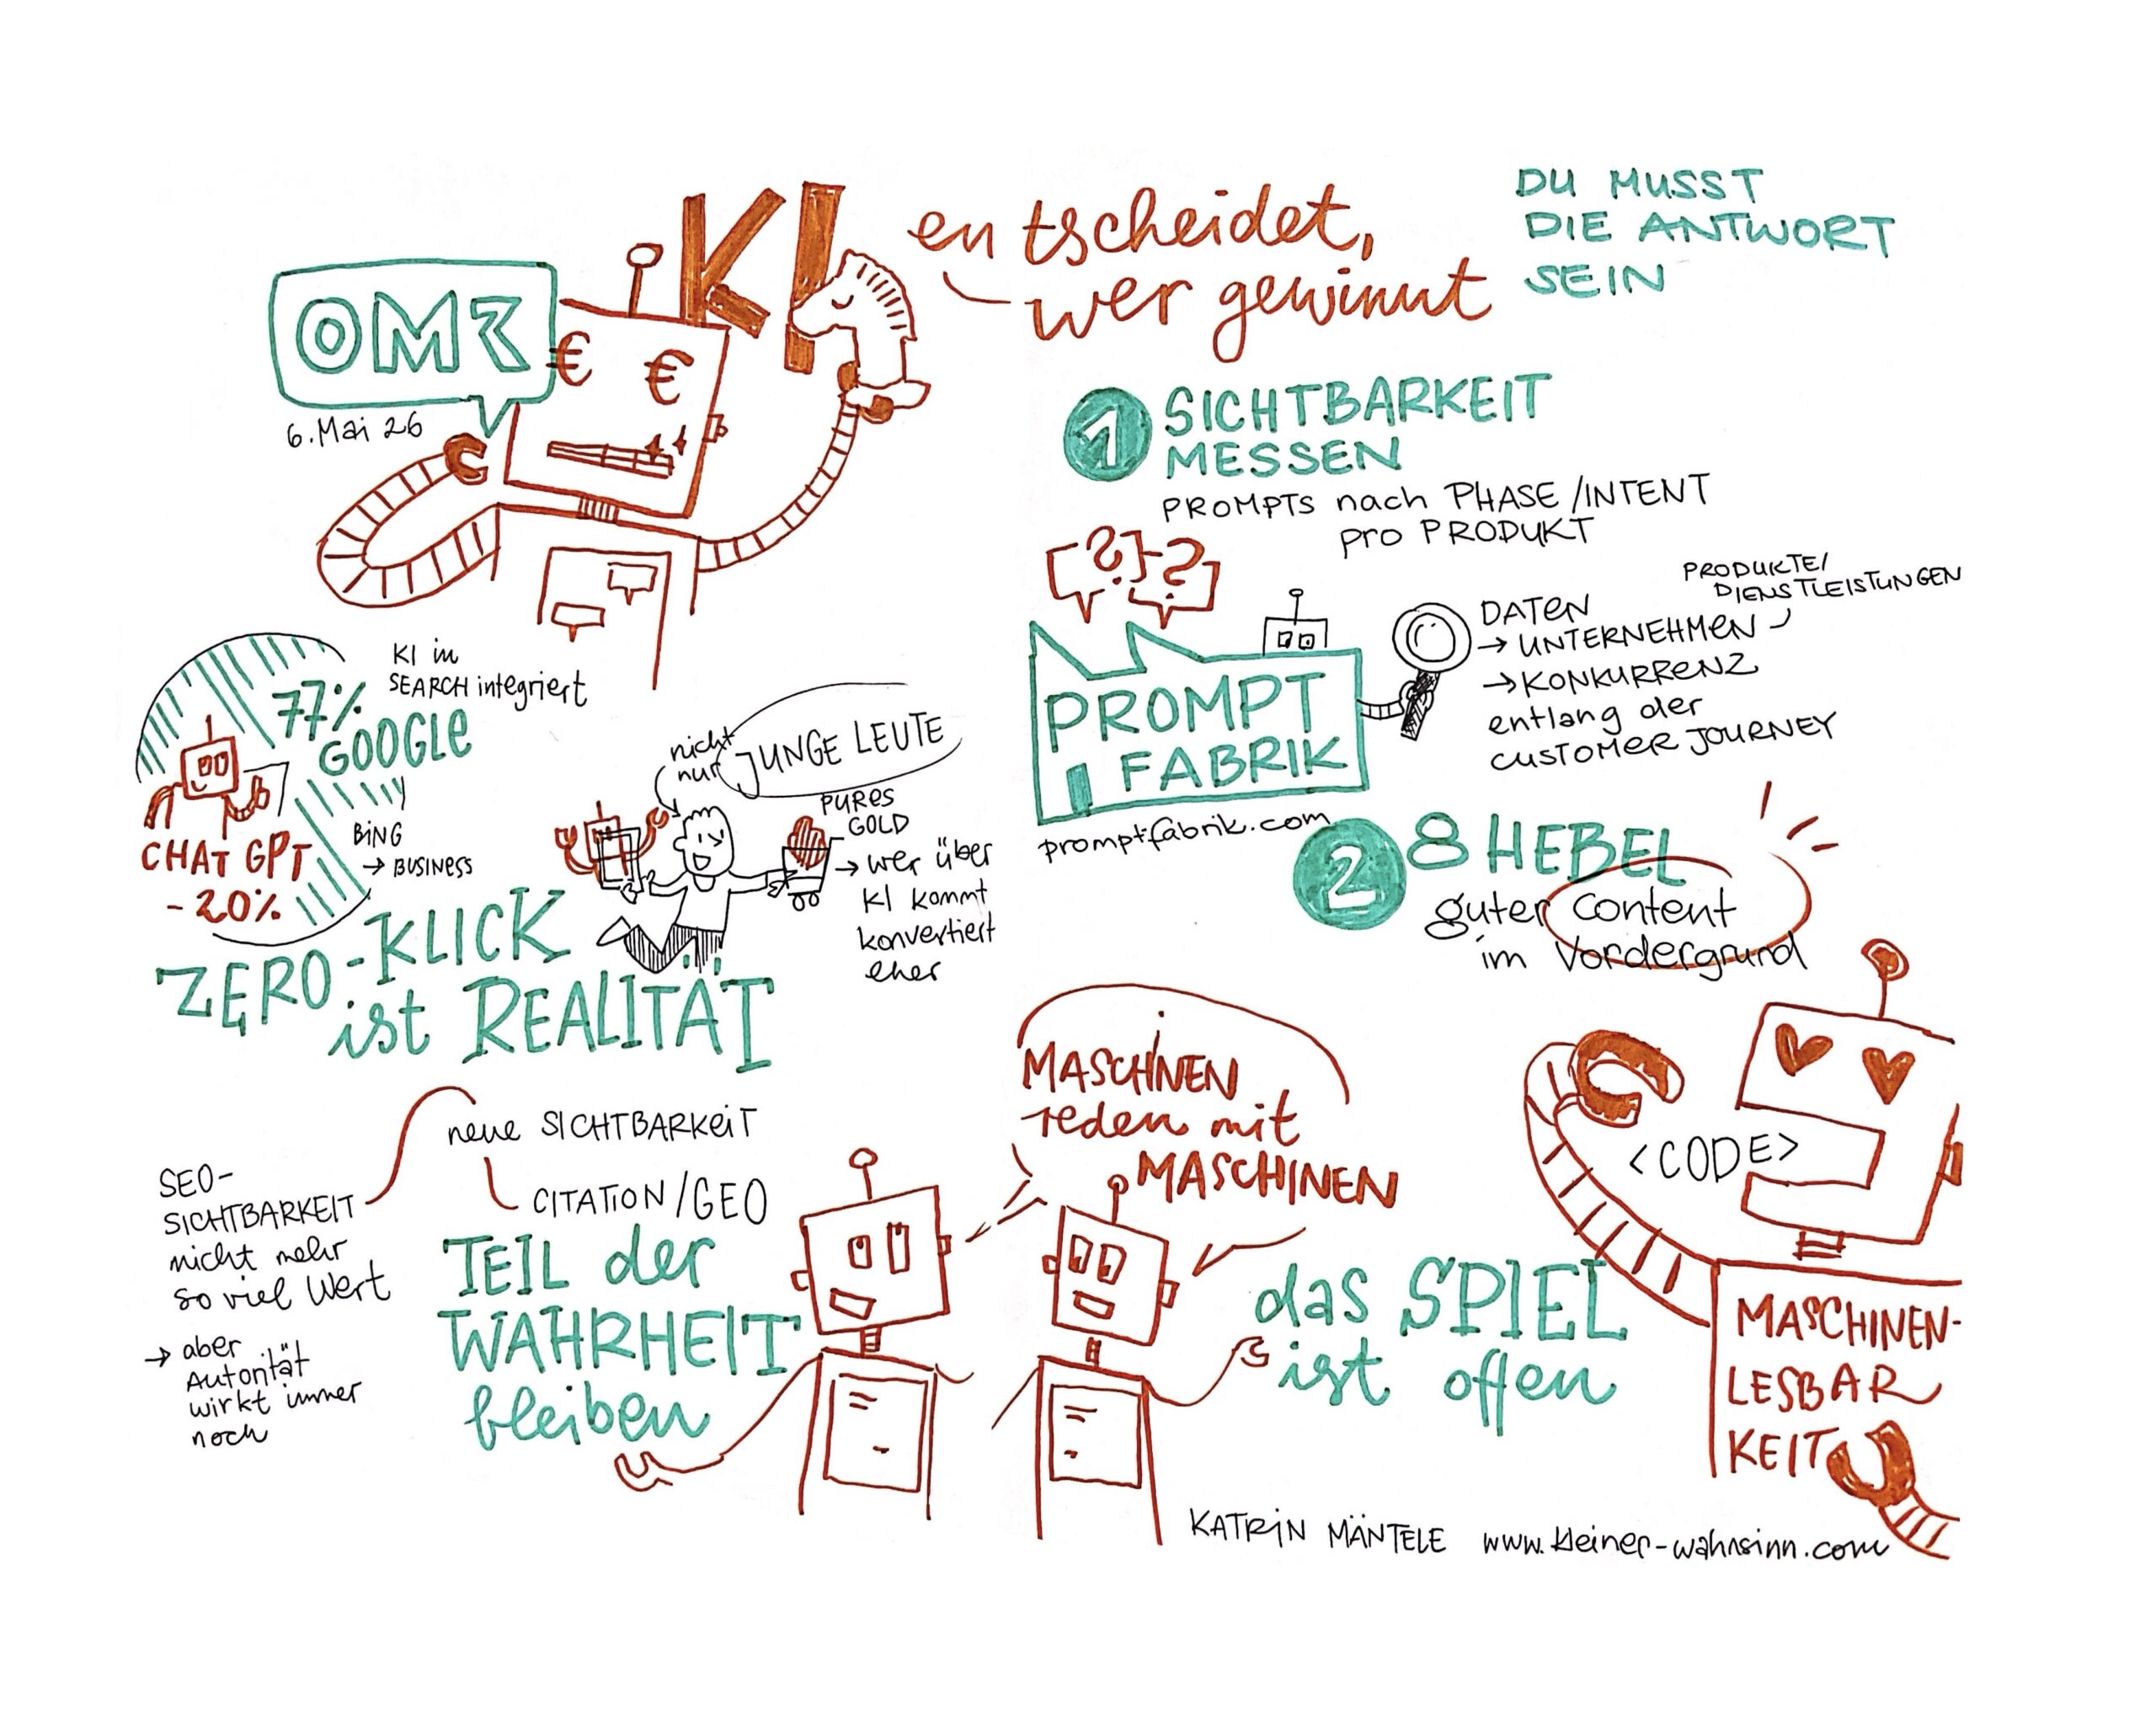 OMR
6. Mai 26
KI
entscheidet,
wer gewinnt
DU MUSST
DIE ANTWORT
SEIN
€ €
1 SICHTBARKEIT
MESSEN
PROMPTS nach PHASE/INTENT
pro PRODUKT
? ?
PROMPT
FABRIK
promptfabrik.com
DATEN
→ UNTERNEHMEN
PRODUKTE/
DIENSTLEISTUNGEN
→ KONKURRENZ
entlang der
CUSTOMER JOURNEY
77%
GOOGLE
KI in
SEARCH integriert
CHAT GPT
- 20%
BING
→ BUSINESS
nicht
nur JUNGE LEUTE
PURES
GOLD
→ wer über
KI kommt
konvertiert
eher
ZERO-KLICK
ist REALITÄT
2 8 HEBEL
guter Content
im Vordergrund
SEO-
SICHTBARKEIT
nicht mehr
so viel Wert
→ aber
Autorität
wirkt immer
noch
neue SICHTBARKEIT
CITATION/GEO
TEIL der
WAHRHEIT
bleiben
MASCHINEN
reden mit
MASCHINEN
das SPIEL
ist offen
<CODE>
MASCHINEN-
LESBAR
KEIT
KATRIN MÄNTELE www.kleiner-wahnsinn.com